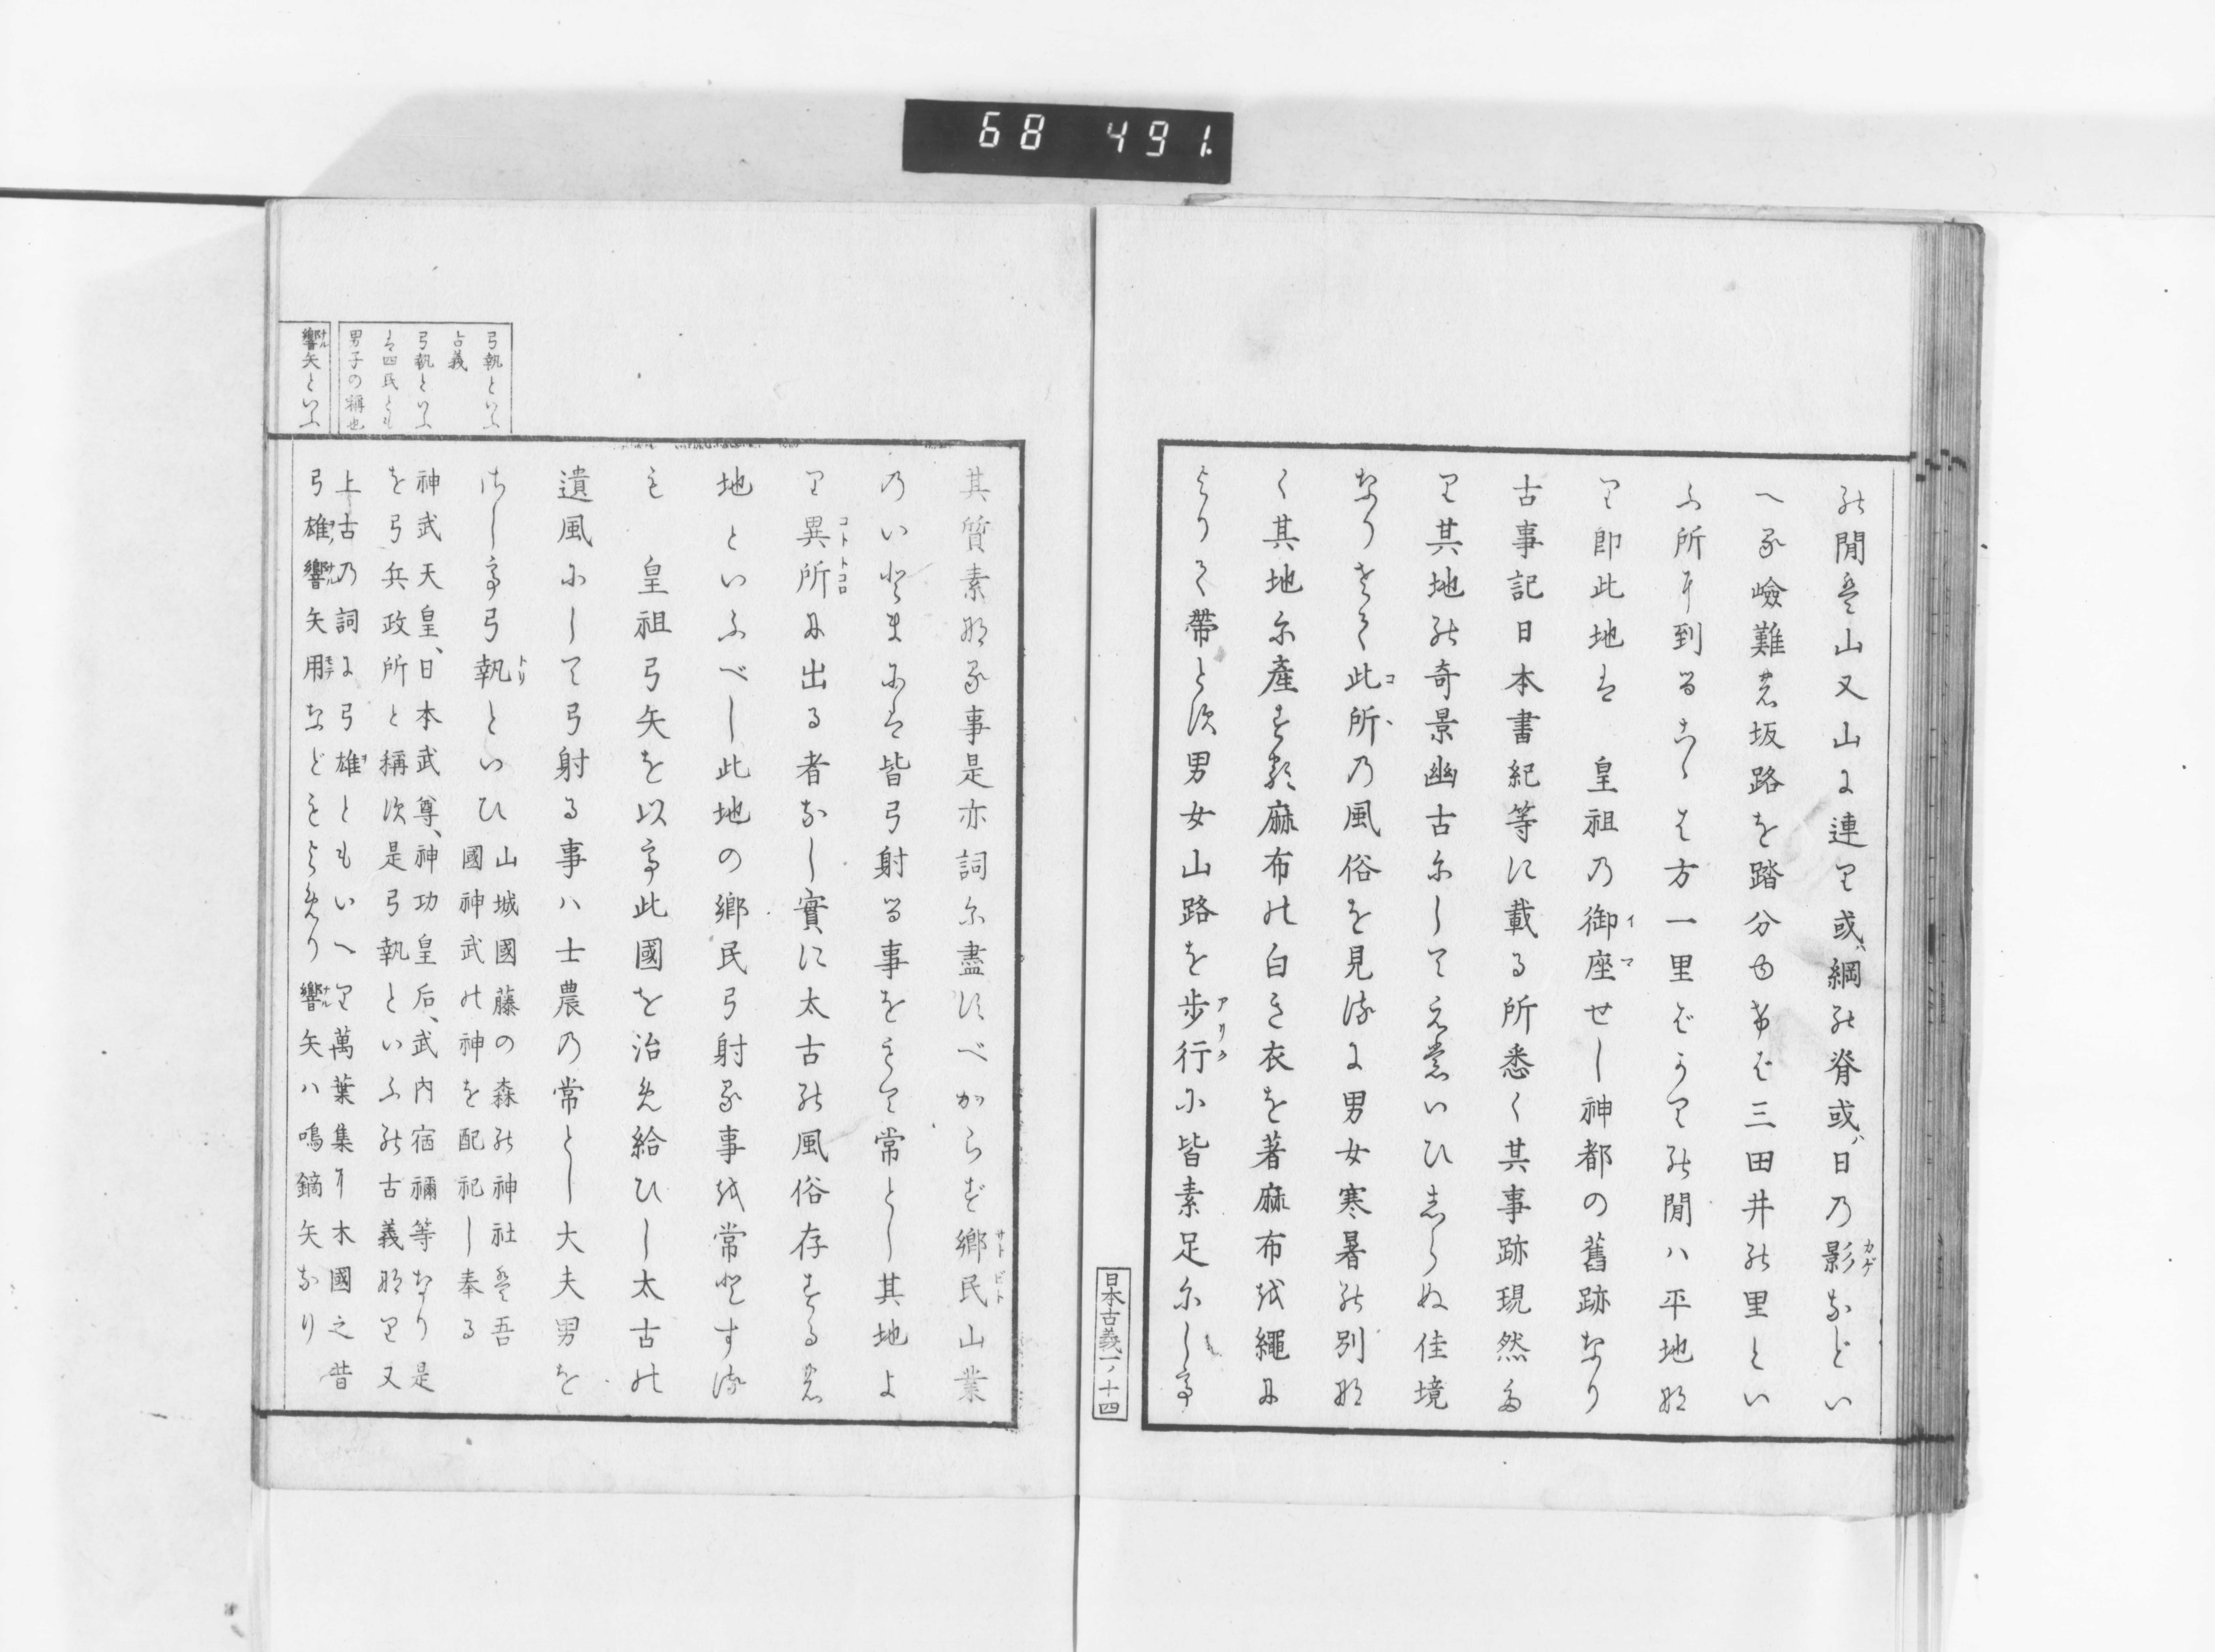 68 491
の間は山又山に連り或ハ綱の脊或ハ日乃影などい
へる嶮難き坂路を踏分ゆけば三田井の里とい
ふ所に到るこゝは方一里ばかりの間ハ平地な
り即此地は 皇祖乃御座せし神都の舊跡なり
古事記日本書紀等に載る所悉く其事跡現然た
り其地の奇景幽古にしてえもいひしらぬ佳境
なりさて此所乃風俗を見るに男女寒暑の別な
く其地に產する麻布の白き衣を著麻布を繩に
よりて帶とす男女山路を歩行に皆素足にして
日本古義一ノ十四
其質素なる事是亦詞に盡すべからず鄉民山業
乃いとまには皆弓射る事をもて常とし其地よ
り異所に出る者なし實に太古の風俗存するき
地といふべし此地の鄉民弓射る事を常とする
も 皇祖弓矢を以て此國を治め給ひし太古の
遺風にして弓射る事ハ士農乃常とし大夫男を
さして弓執といひ
山城國藤の森の神社は吾
國神武の神を配祀し奉る
神武天皇、日本武尊、神功皇后、武内宿禰等なり是
を弓兵政所と稱す是弓執といふの古義なり又
上古乃詞に弓雄ともいへり萬葉集に木國之昔
弓雄響矢用などもよめり響矢ハ鳴鏑矢なり
弓執といふ
古義
弓執といふ
は四民とも
男子の稱也
響矢といふ